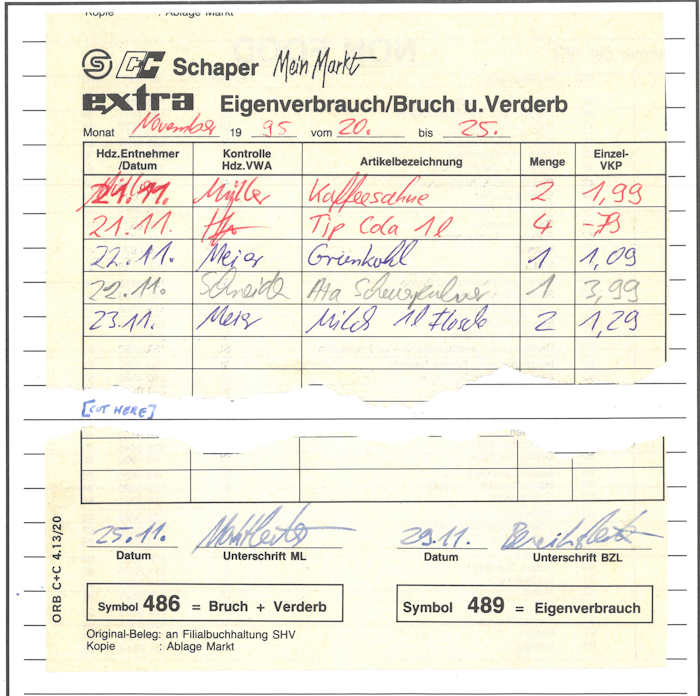 Kopie : Ablage Markt
CC Schaper Mein Markt
extra Eigenverbrauch/Bruch u.Verderb
Monat November 19 95 vom 20. bis 25.
Hdz.Entnehmer /Datum Kontrolle Hdz.VWA Artikelbezeichnung Menge Einzel-VKP
21.11. Müller Kaffeesahne 2 1,99
21.11. Tip Cola 1l 4 -79
22.11. Meier Grünkohl 1 1,09
22.11. Schneider Ata Scheuerpulver 1 3,99
23.11. Meier Milch 1l Flasche 2 1,29
[CUT HERE]
25.11. Marktleiter 29.11. Bereichsleiter
Datum Unterschrift ML Datum Unterschrift BZL
Symbol 486 = Bruch + Verderb Symbol 489 = Eigenverbrauch
Original-Beleg: an Filialbuchhaltung SHV
Kopie : Ablage Markt
ORB C+C 4.13/20